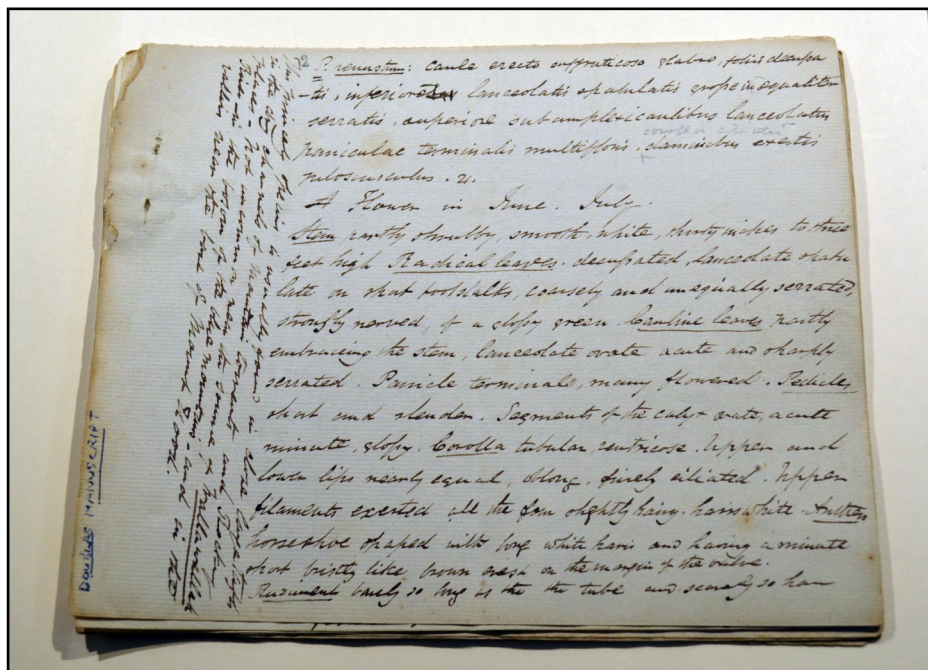 72 P. venustum: caule erecto suffruticoso glabro, foliis decussa
-tis, inferiore lanceolatis spatulatis grosse inequaliter
serratis, superiore subamplexicaulibus lanceolatis
paniculae terminalis multifloris, staminibus exertis
corollis
pilosiusculus. 2.
Flower in June. July.
Stem partly shrubby, smooth, white, thirty inches to three
feet high Radical leaves decussated, lanceolate spatu
late on short footstalks, coarsely and unequally serrated,
strongly nerved, of a glossy green. Cauline leaves partly
embracing the stem, lanceolate ovate acute and sharply
serrated. Panicle terminale, many flowered. Pedicles
short and slender. Segments of the calyx ovate, acute
minute, glossy. Corolla tubular, ventricose. Upper and
lower lips nearly equal, oblong, finely ciliated. Upper
filaments exerted all the four slightly hairy. hairs white. Anthers
horseshoe shaped with long white hairs and having a minute
short bristly like brown crest on the margin of the valve.
Rudiment barely so long as the the tube and scarcely so hair
This species is usually found in
in the dry channels of Mountain Torrents and Rocky
places. Not uncommon near the source of Wallawallah
River in the bosom of the blue mountains; and in the
vallies near the base of Mount Hood.
DOUGLAS MANUSCRIPT